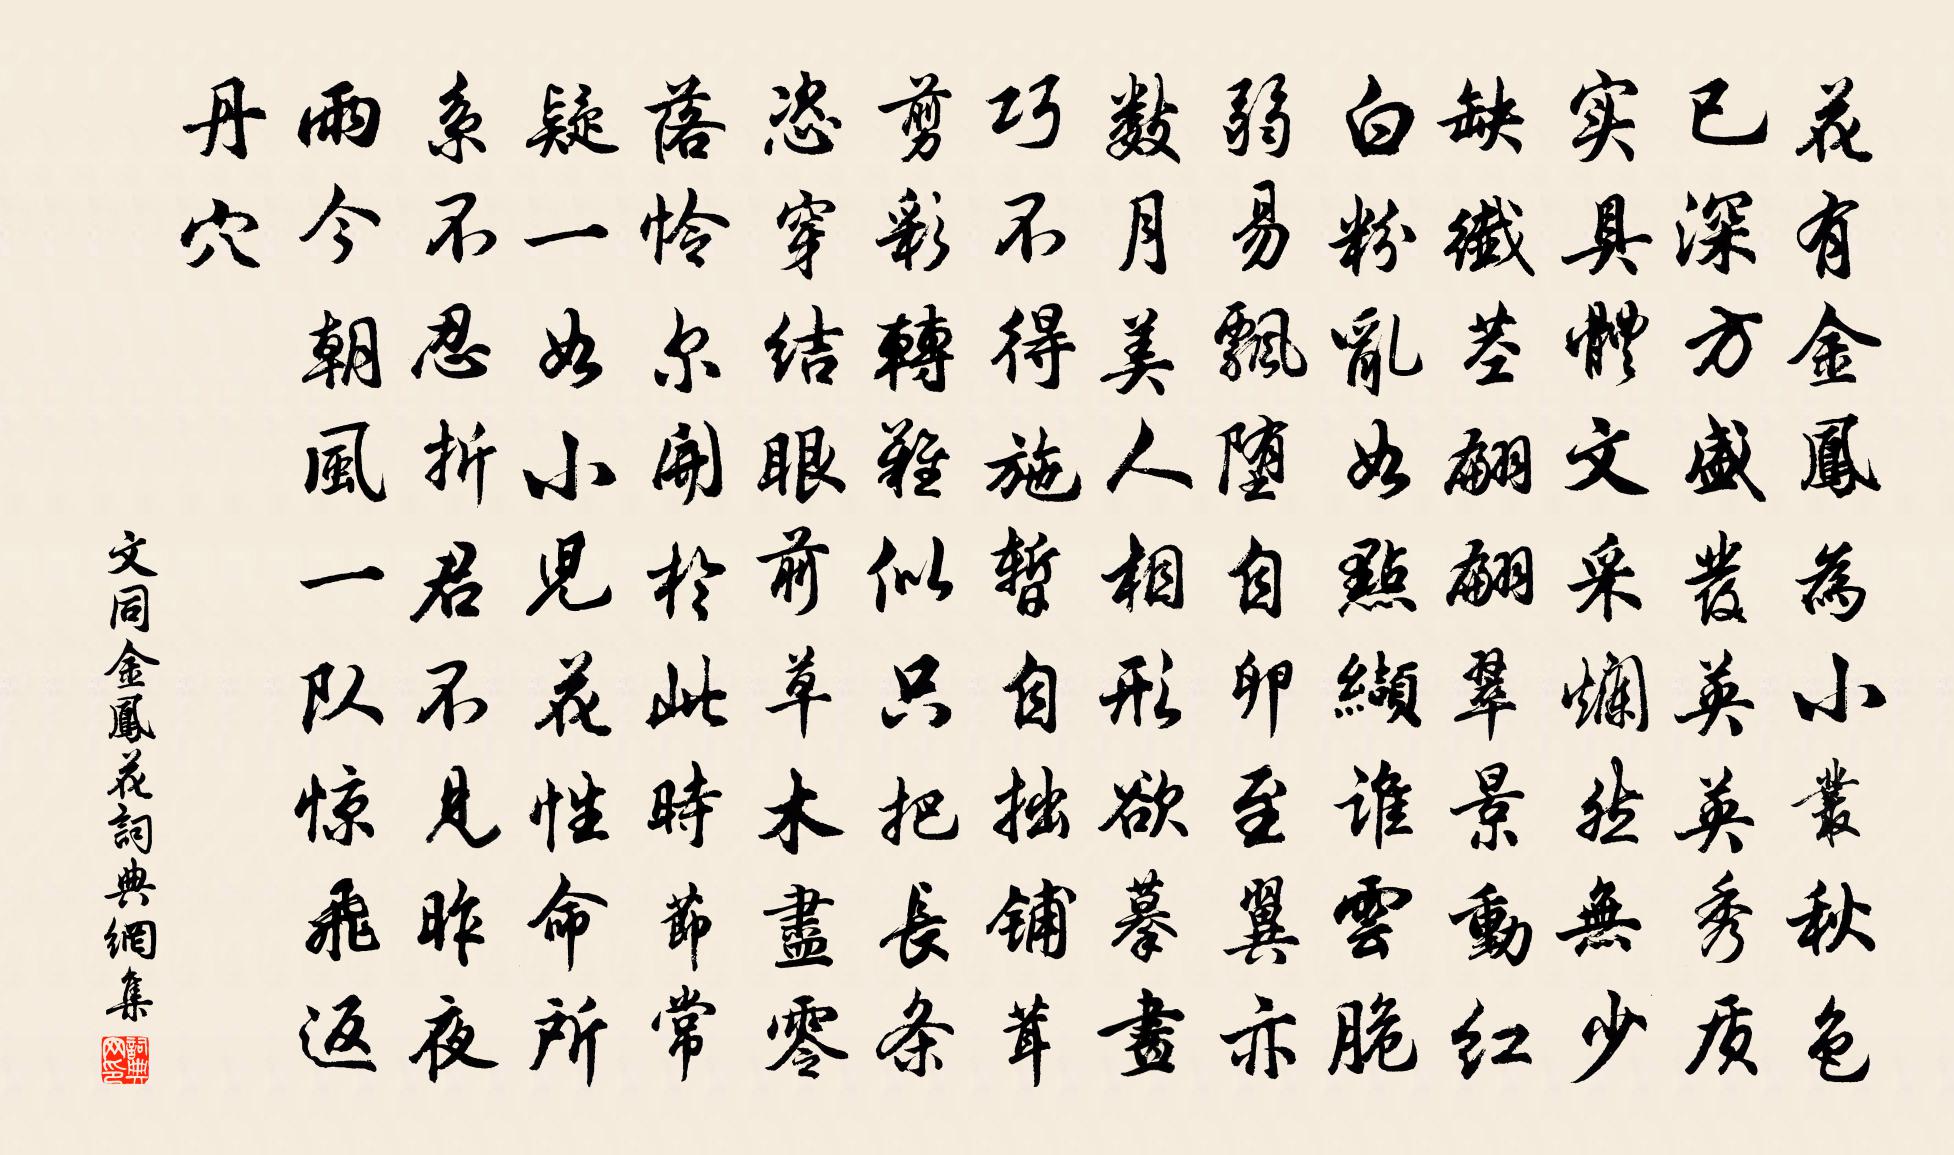 花有金鳳為小叢秋色
已深方盛發英英秀质
实具體文采爛然無少
缺纖茎翩翩翠景動红
白粉亂如點纈誰雲脆
弱易飄堕自卵至翼亦
數月美人相形欲摹畫
巧不得施暫自拙铺茸
剪彩轉難似只把長条
恣穿结眼前草木盡零
落怜尔開於此時節常
疑一如小児花性命所
系不忍折君不見昨夜
雨今朝風一队惊飛返
丹穴
文同金鳳花詞典網集
詞典网印